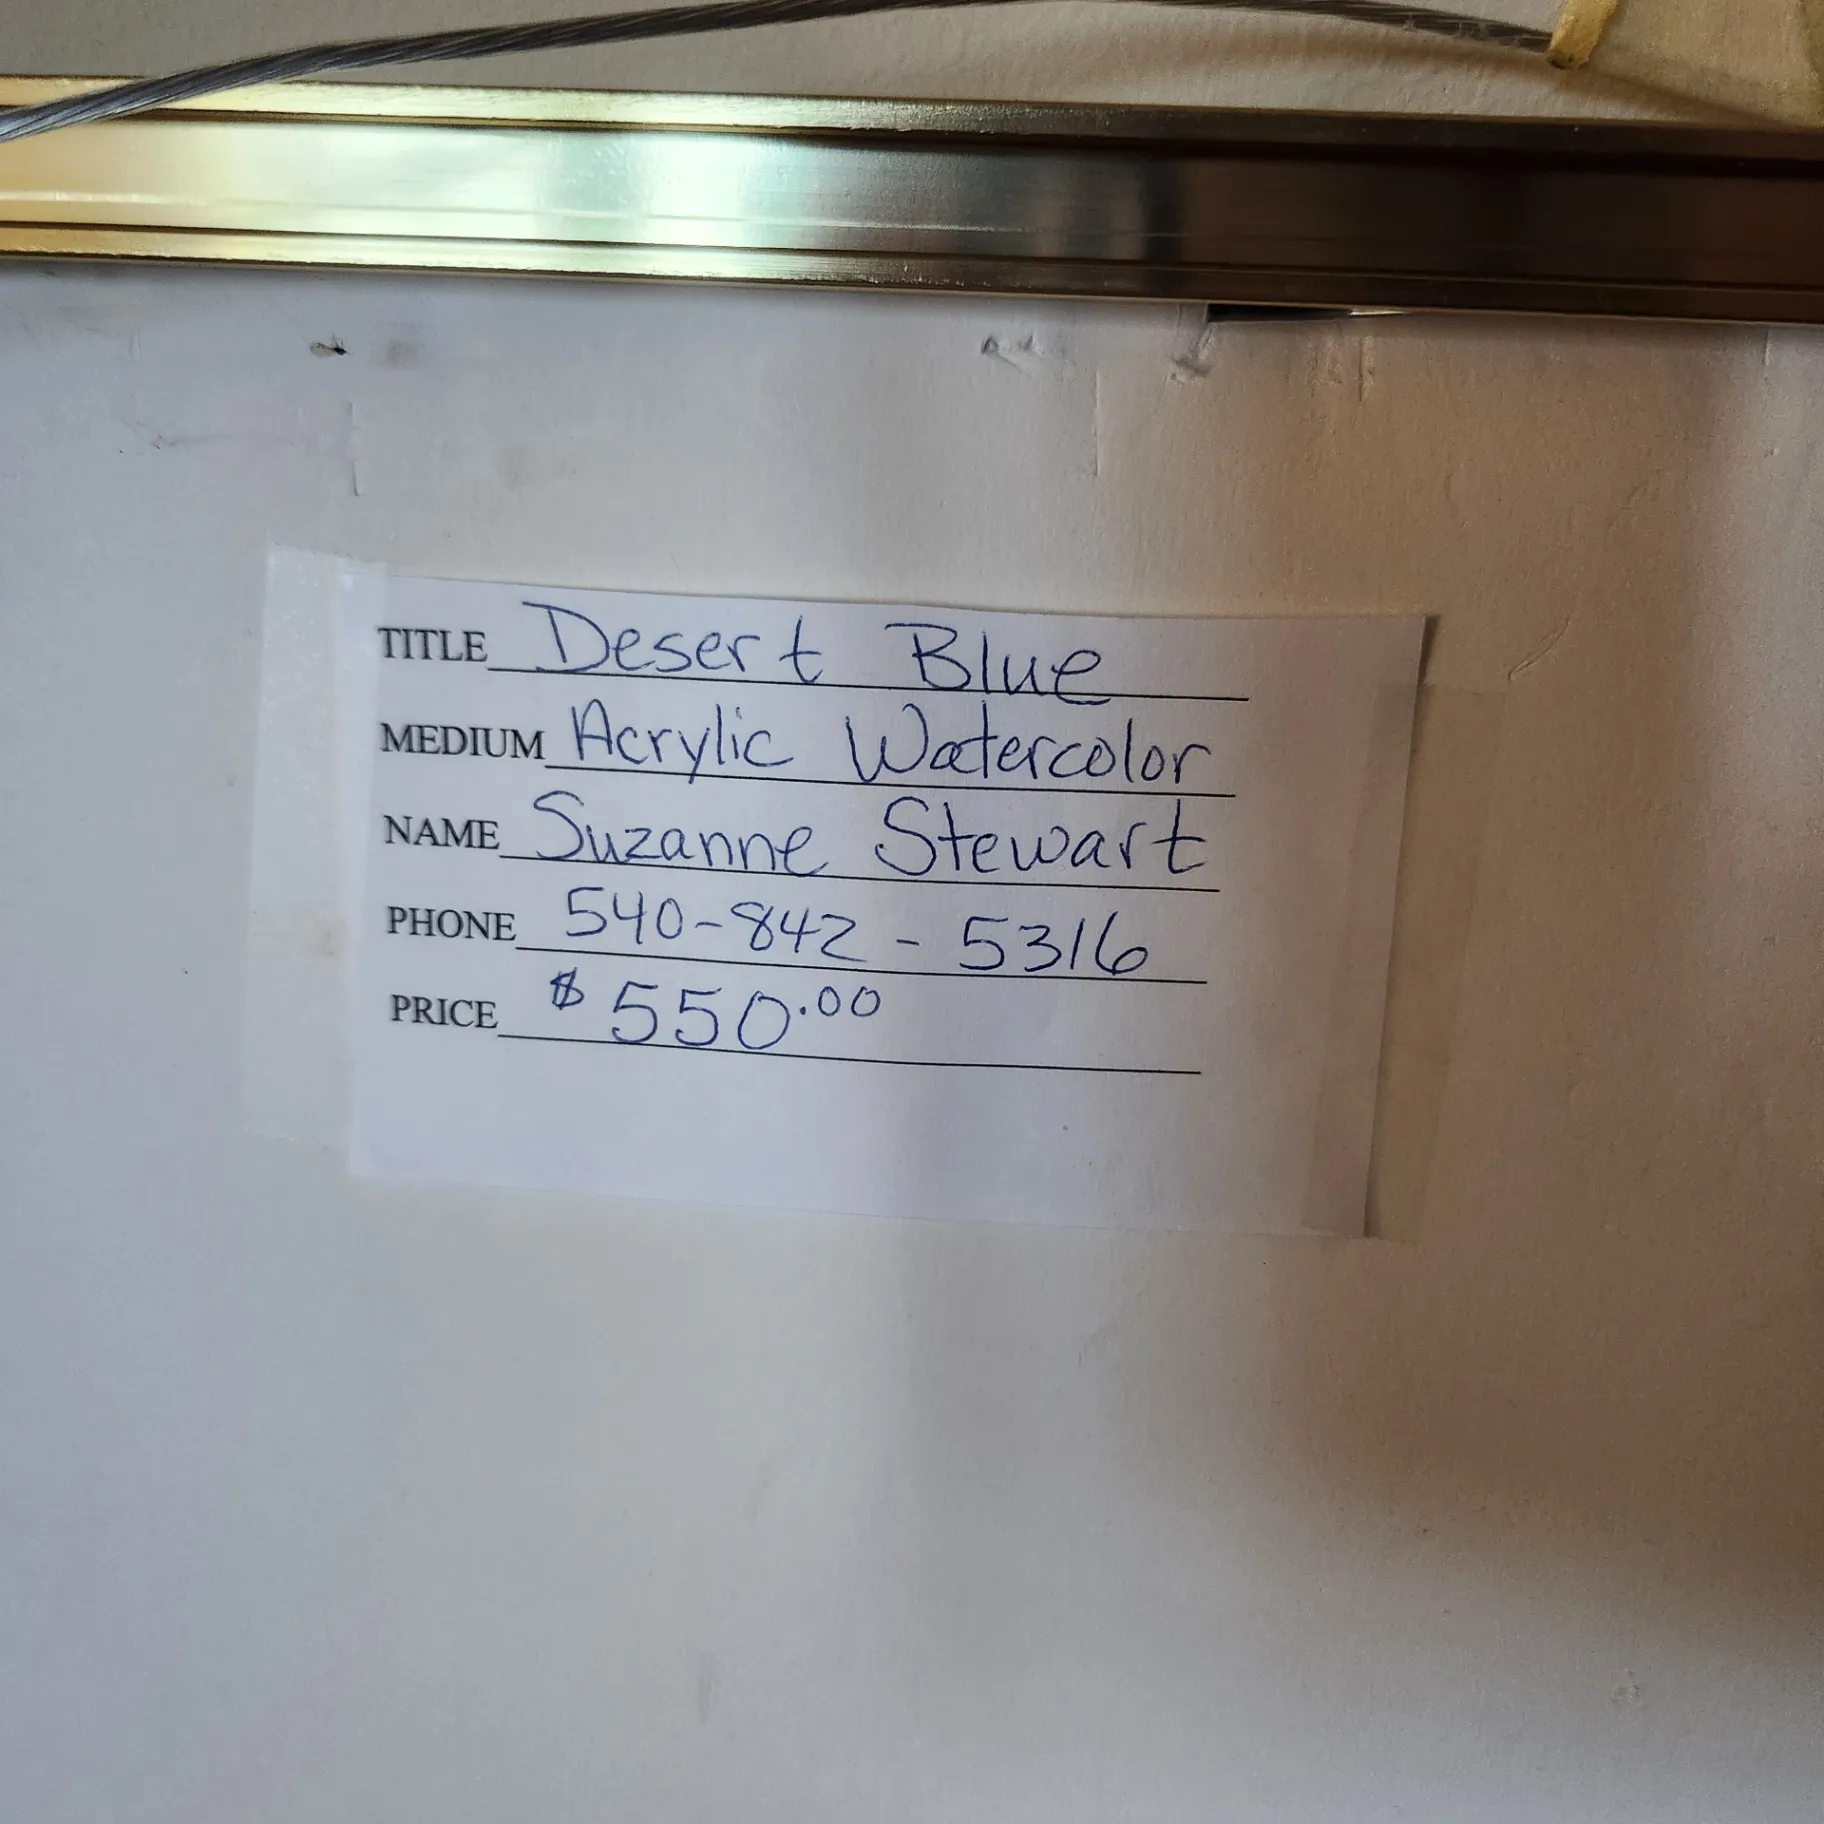 TITLE Desert Blue
MEDIUM Acrylic Watercolor
NAME Suzanne Stewart
PHONE 540-842-5316
PRICE $550.00